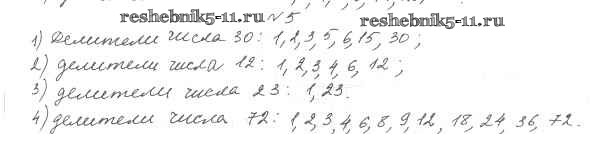 reshebnik5-11.ru № 5 reshebnik5-11.ru
1) Делители числа 30: 1,2,3,5,6,15,30;
2) делители числа 12: 1,2,3,4,6,12;
3) делители числа 23: 1,23.
4) делители числа 72: 1,2,3,4,6,8,9,12, 18, 24, 36, 72.